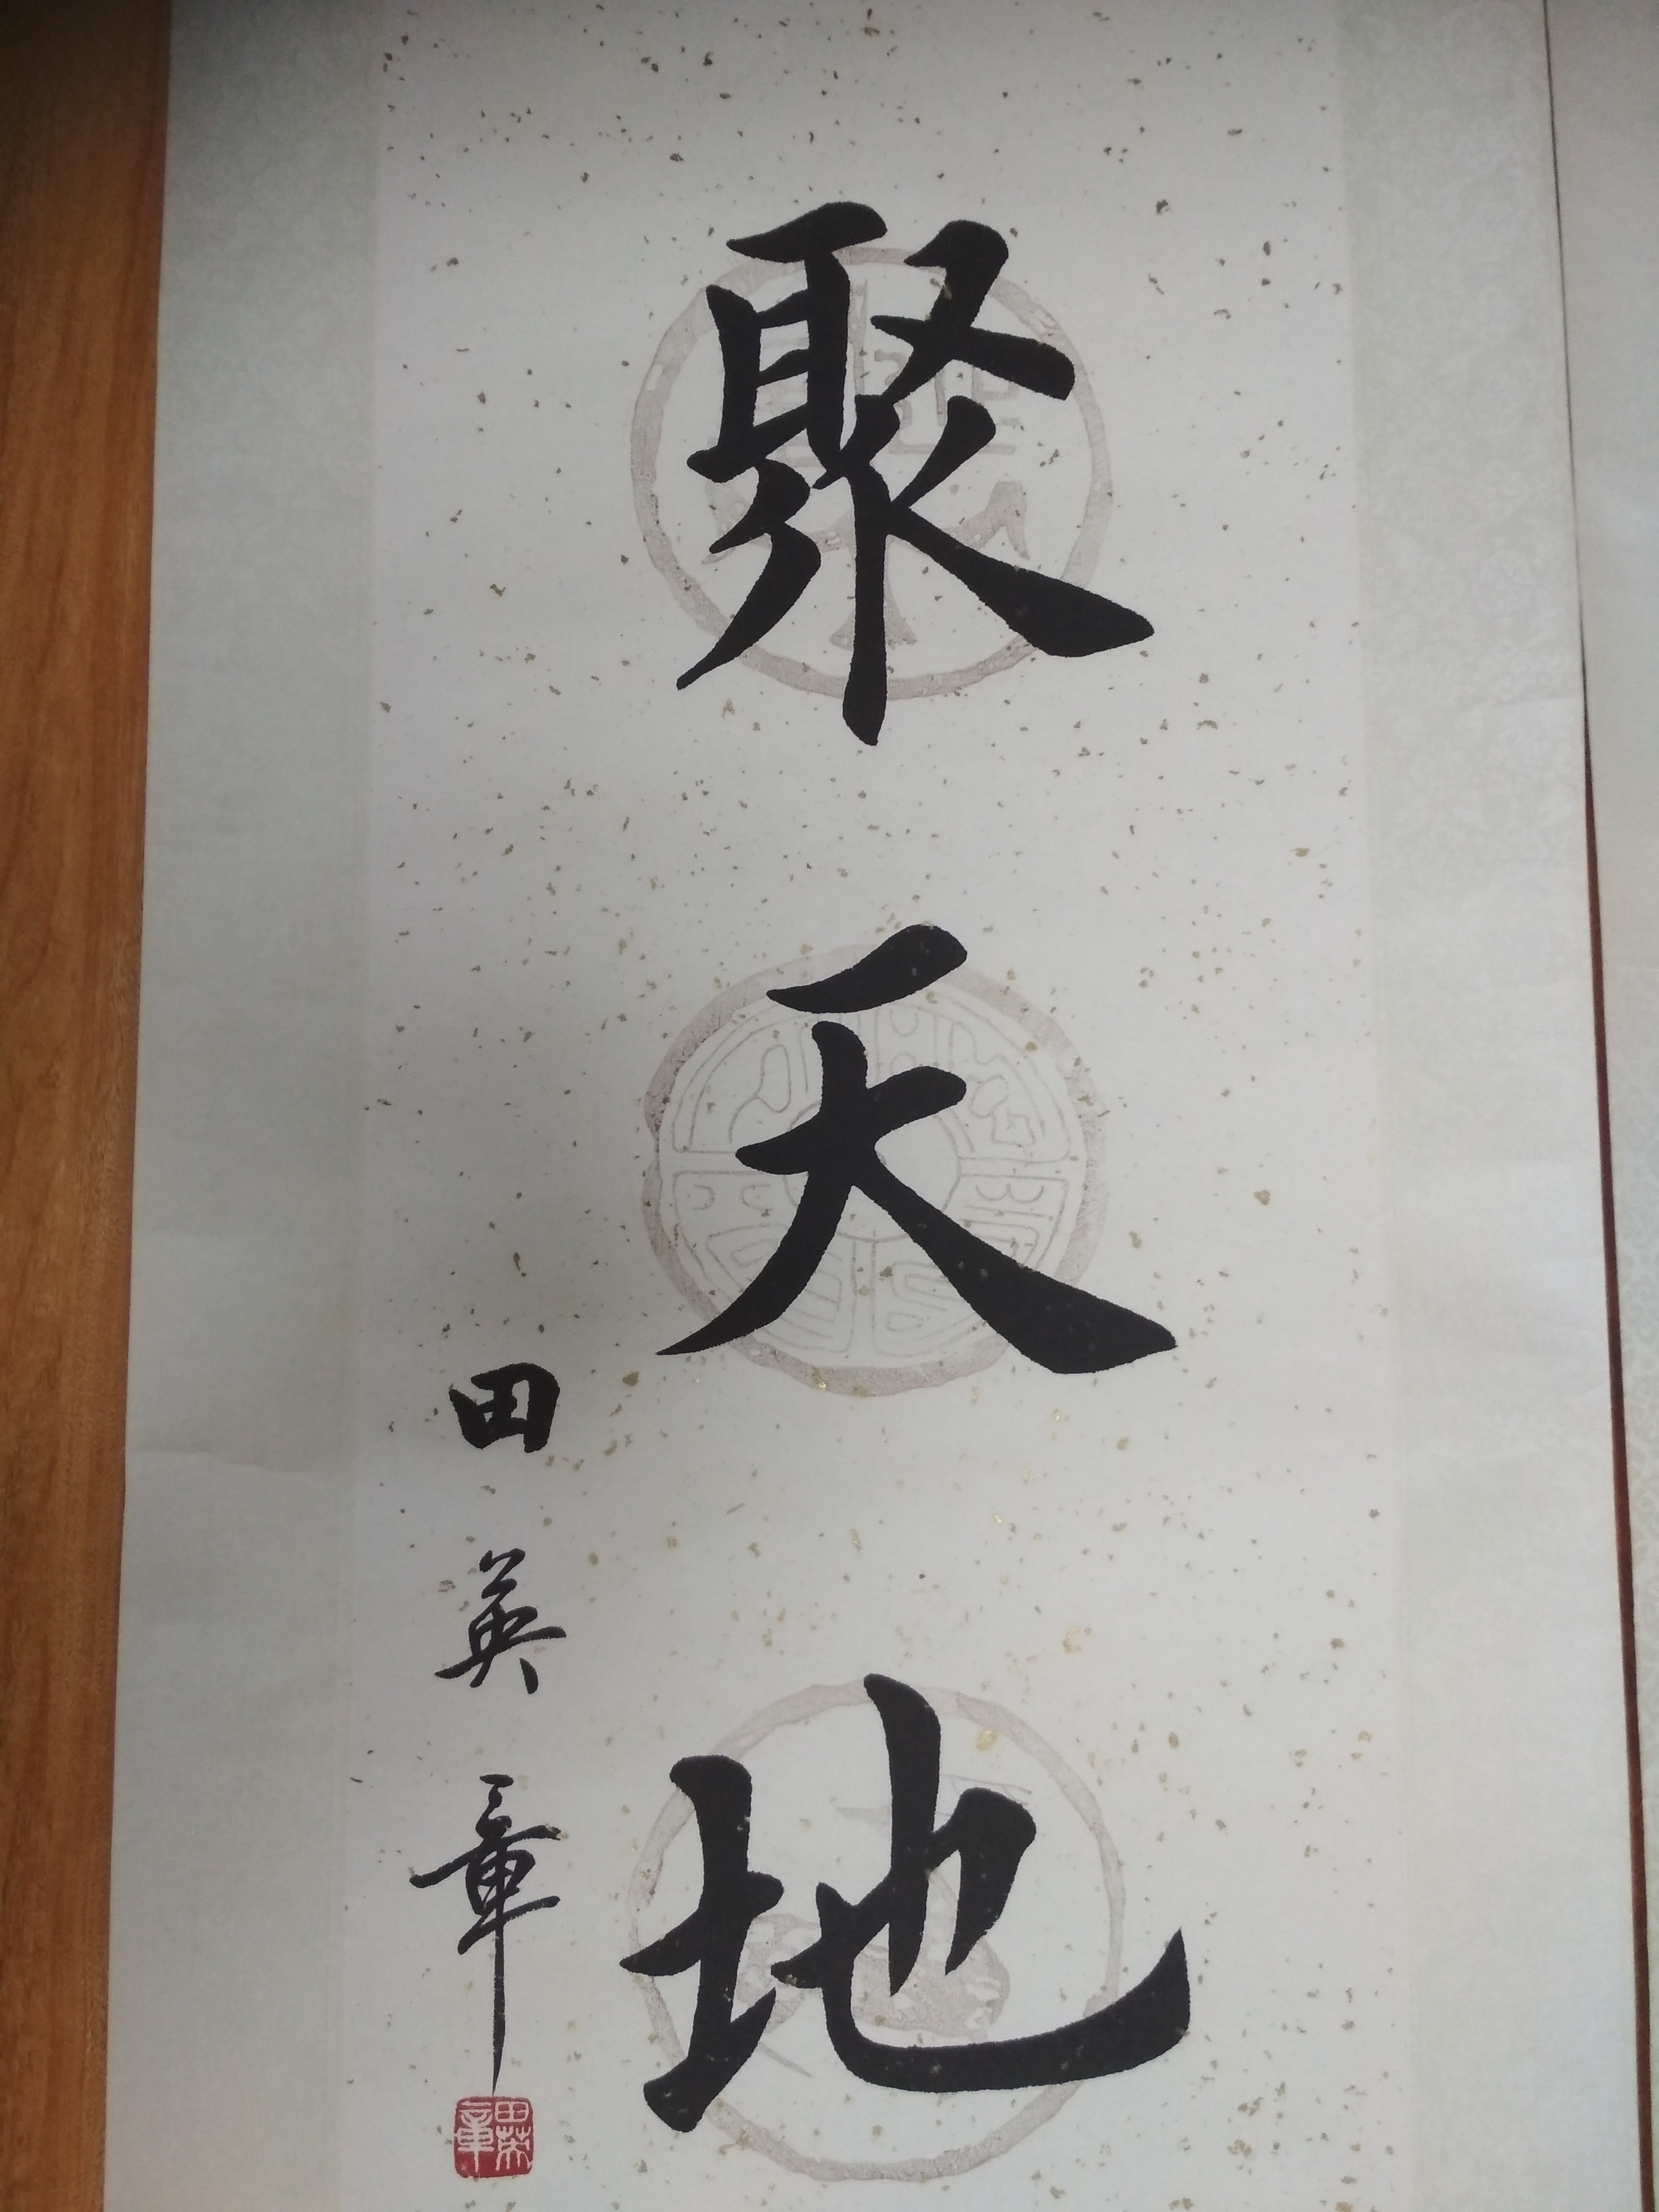 聚天地
田英章
田英章